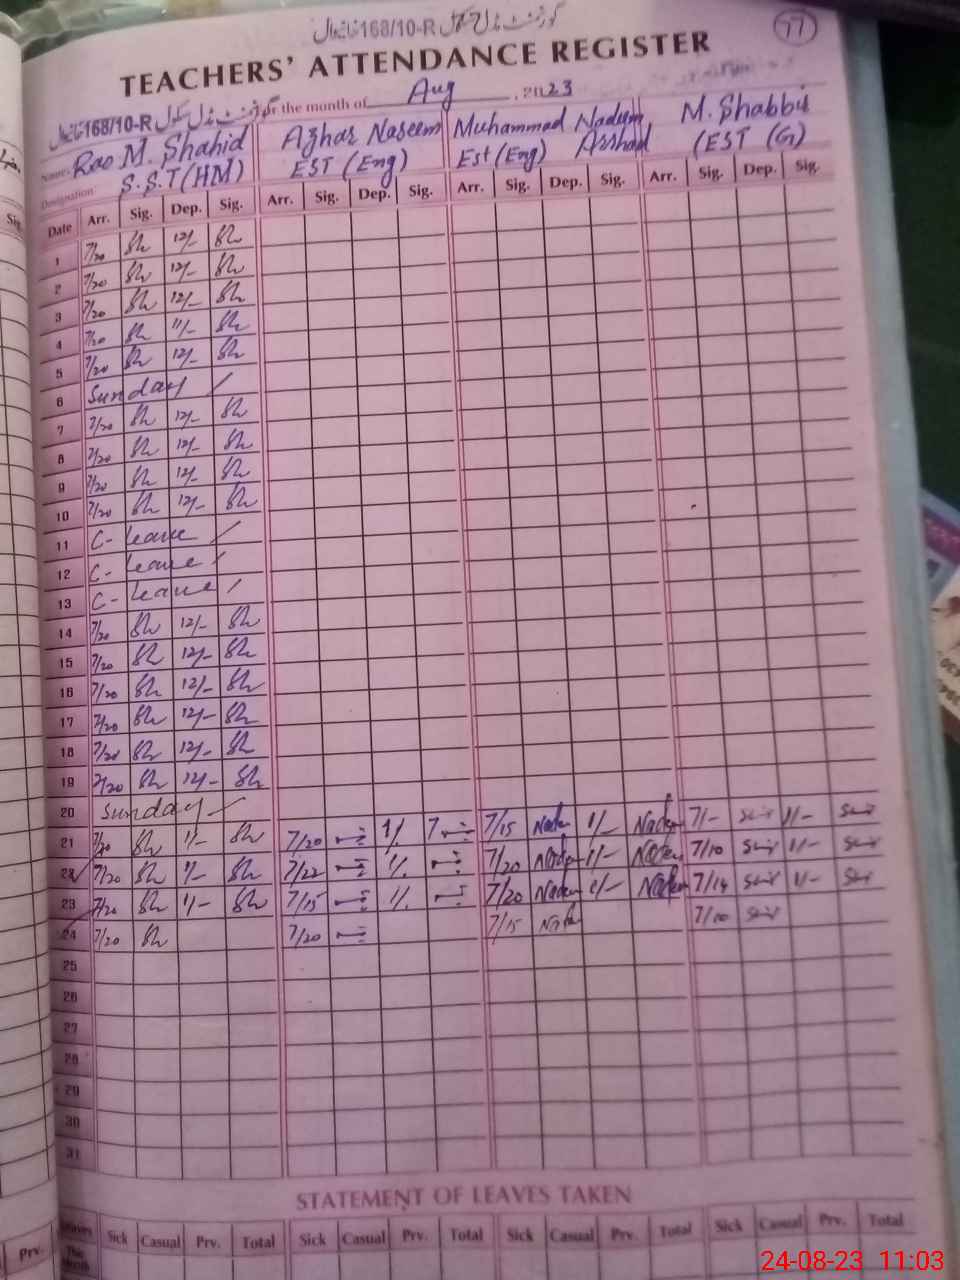 گورنمنٹ مڈل سکول 168/10-R خانیوال
77
TEACHERS' ATTENDANCE REGISTER
گورنمنٹ مڈل سکول 168/10-R خانیوال
for the month of Aug, 2023
Name. Rao M. Shahid Azhar Naseem Muhammad Nadum Arshad M. Shabbir
Designation S.S.T (HM) EST (Eng) Est (Eng) (EST (G)
Date Arr. Sig. Dep. Sig. Arr. Sig. Dep. Sig. Arr. Sig. Dep. Sig. Arr. Sig. Dep. Sig.
1 7/20 Sh 12/- Sh
2 7/20 Sh 12/- Sh
3 7/20 Sh 12/- Sh
4 7/20 Sh 11/- Sh
5 7/20 Sh 12/- Sh
6 Sunday /
7 7/20 Sh 12/- Sh
8 7/20 Sh 12/- Sh
9 7/20 Sh 12/- Sh
10 7/20 Sh 12/- Sh
11 C- leave /
12 C- leave /
13 C- leave /
14 7/20 Sh 12/- Sh
15 7/20 Sh 12/- Sh
16 7/20 Sh 12/- Sh
17 7/20 Sh 12/- Sh
18 7/20 Sh 12/- Sh
19 7/20 Sh 12/- Sh
20 Sunday -/
21 7/20 Sh 1/- Sh 7/20 1/. 7/15 Nadeem 1/- Nadeem 7/- 1/-
22 7/20 Sh 1/- Sh 7/22 1/. 7/20 Nadeem 1/- Nadeem 7/10 1/-
23 7/20 Sh 1/- Sh 7/15 1/. 7/20 Nadeem 1/- Nadeem 7/14 1/-
24 7/20 Sh 7/20 7/15 7/10
25
26
27
28
29
30
31
STATEMENT OF LEAVES TAKEN
Leaves Sick Casual Prv. Total Sick Casual Prv. Total Sick Casual Prv. Total Sick Casual Prv. Total
Prv. This Month
24-08-23 11:03